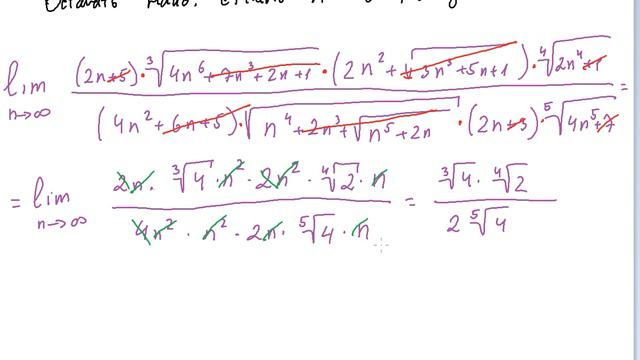 lim n→∞ (2n+5)·∛(4n⁶+7n³+2n+1)·(2n²+√(3n³+5n+1))·∜(2n⁴+1) / (4n²+6n+5)·√(n⁴+2n³+√(n⁵+2n))·(2n+3)·⁵√(4n⁵+7) =
= lim n→∞ 2n·∛4·n²·2n²·∜2·n / 4n²·n²·2n·⁵√4·n = ∛4·∜2 / 2 ⁵√4